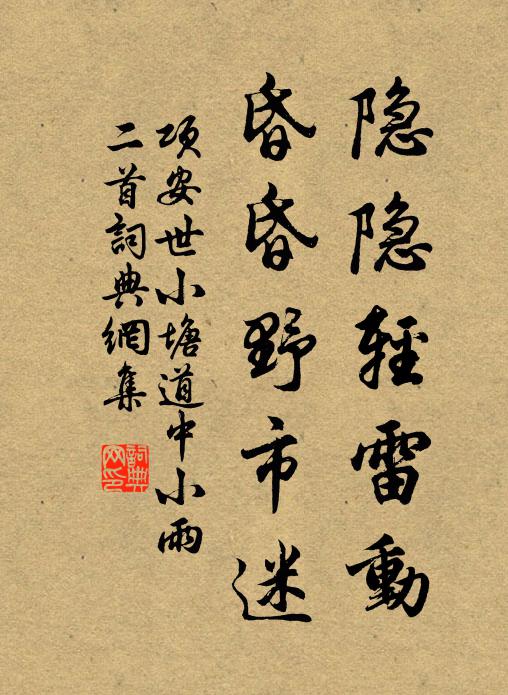 隐隐輕雷動
昏昏野市迷
项安世小塘道中小雨
二首詞典網集
詞典网印